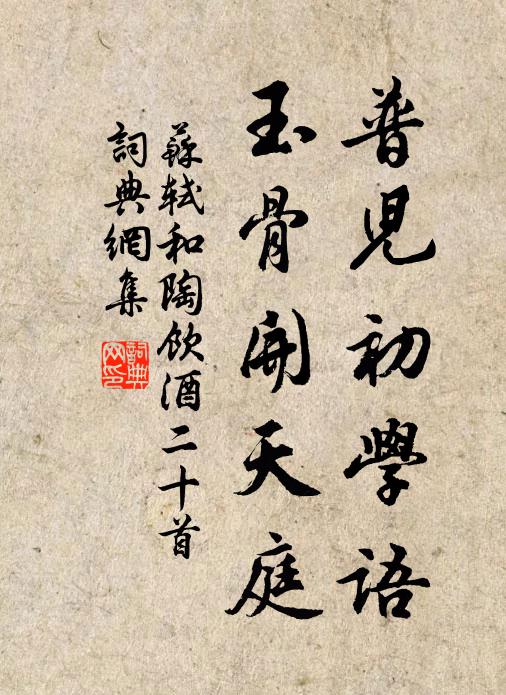 普児初學語
玉骨開天庭
蘇軾和陶飲酒二十首
詞典網集
詞典網印